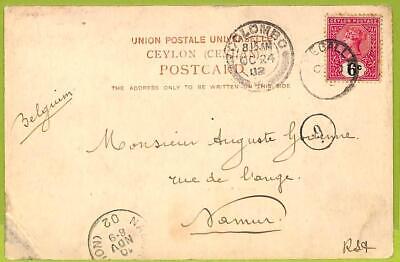 UNION POSTALE UNIVERSELLE
CEYLON (CEYLAN)
POSTCARD
THE ADDRESS ONLY TO BE WRITTEN ON THIS SIDE
COLOMBO
8 15 AM
OC 24
02
CEYLON POSTAGE
6c
Belgium
Monsieur Auguste
rue de l'ange.
Namur.
10
NOV
8-9
02